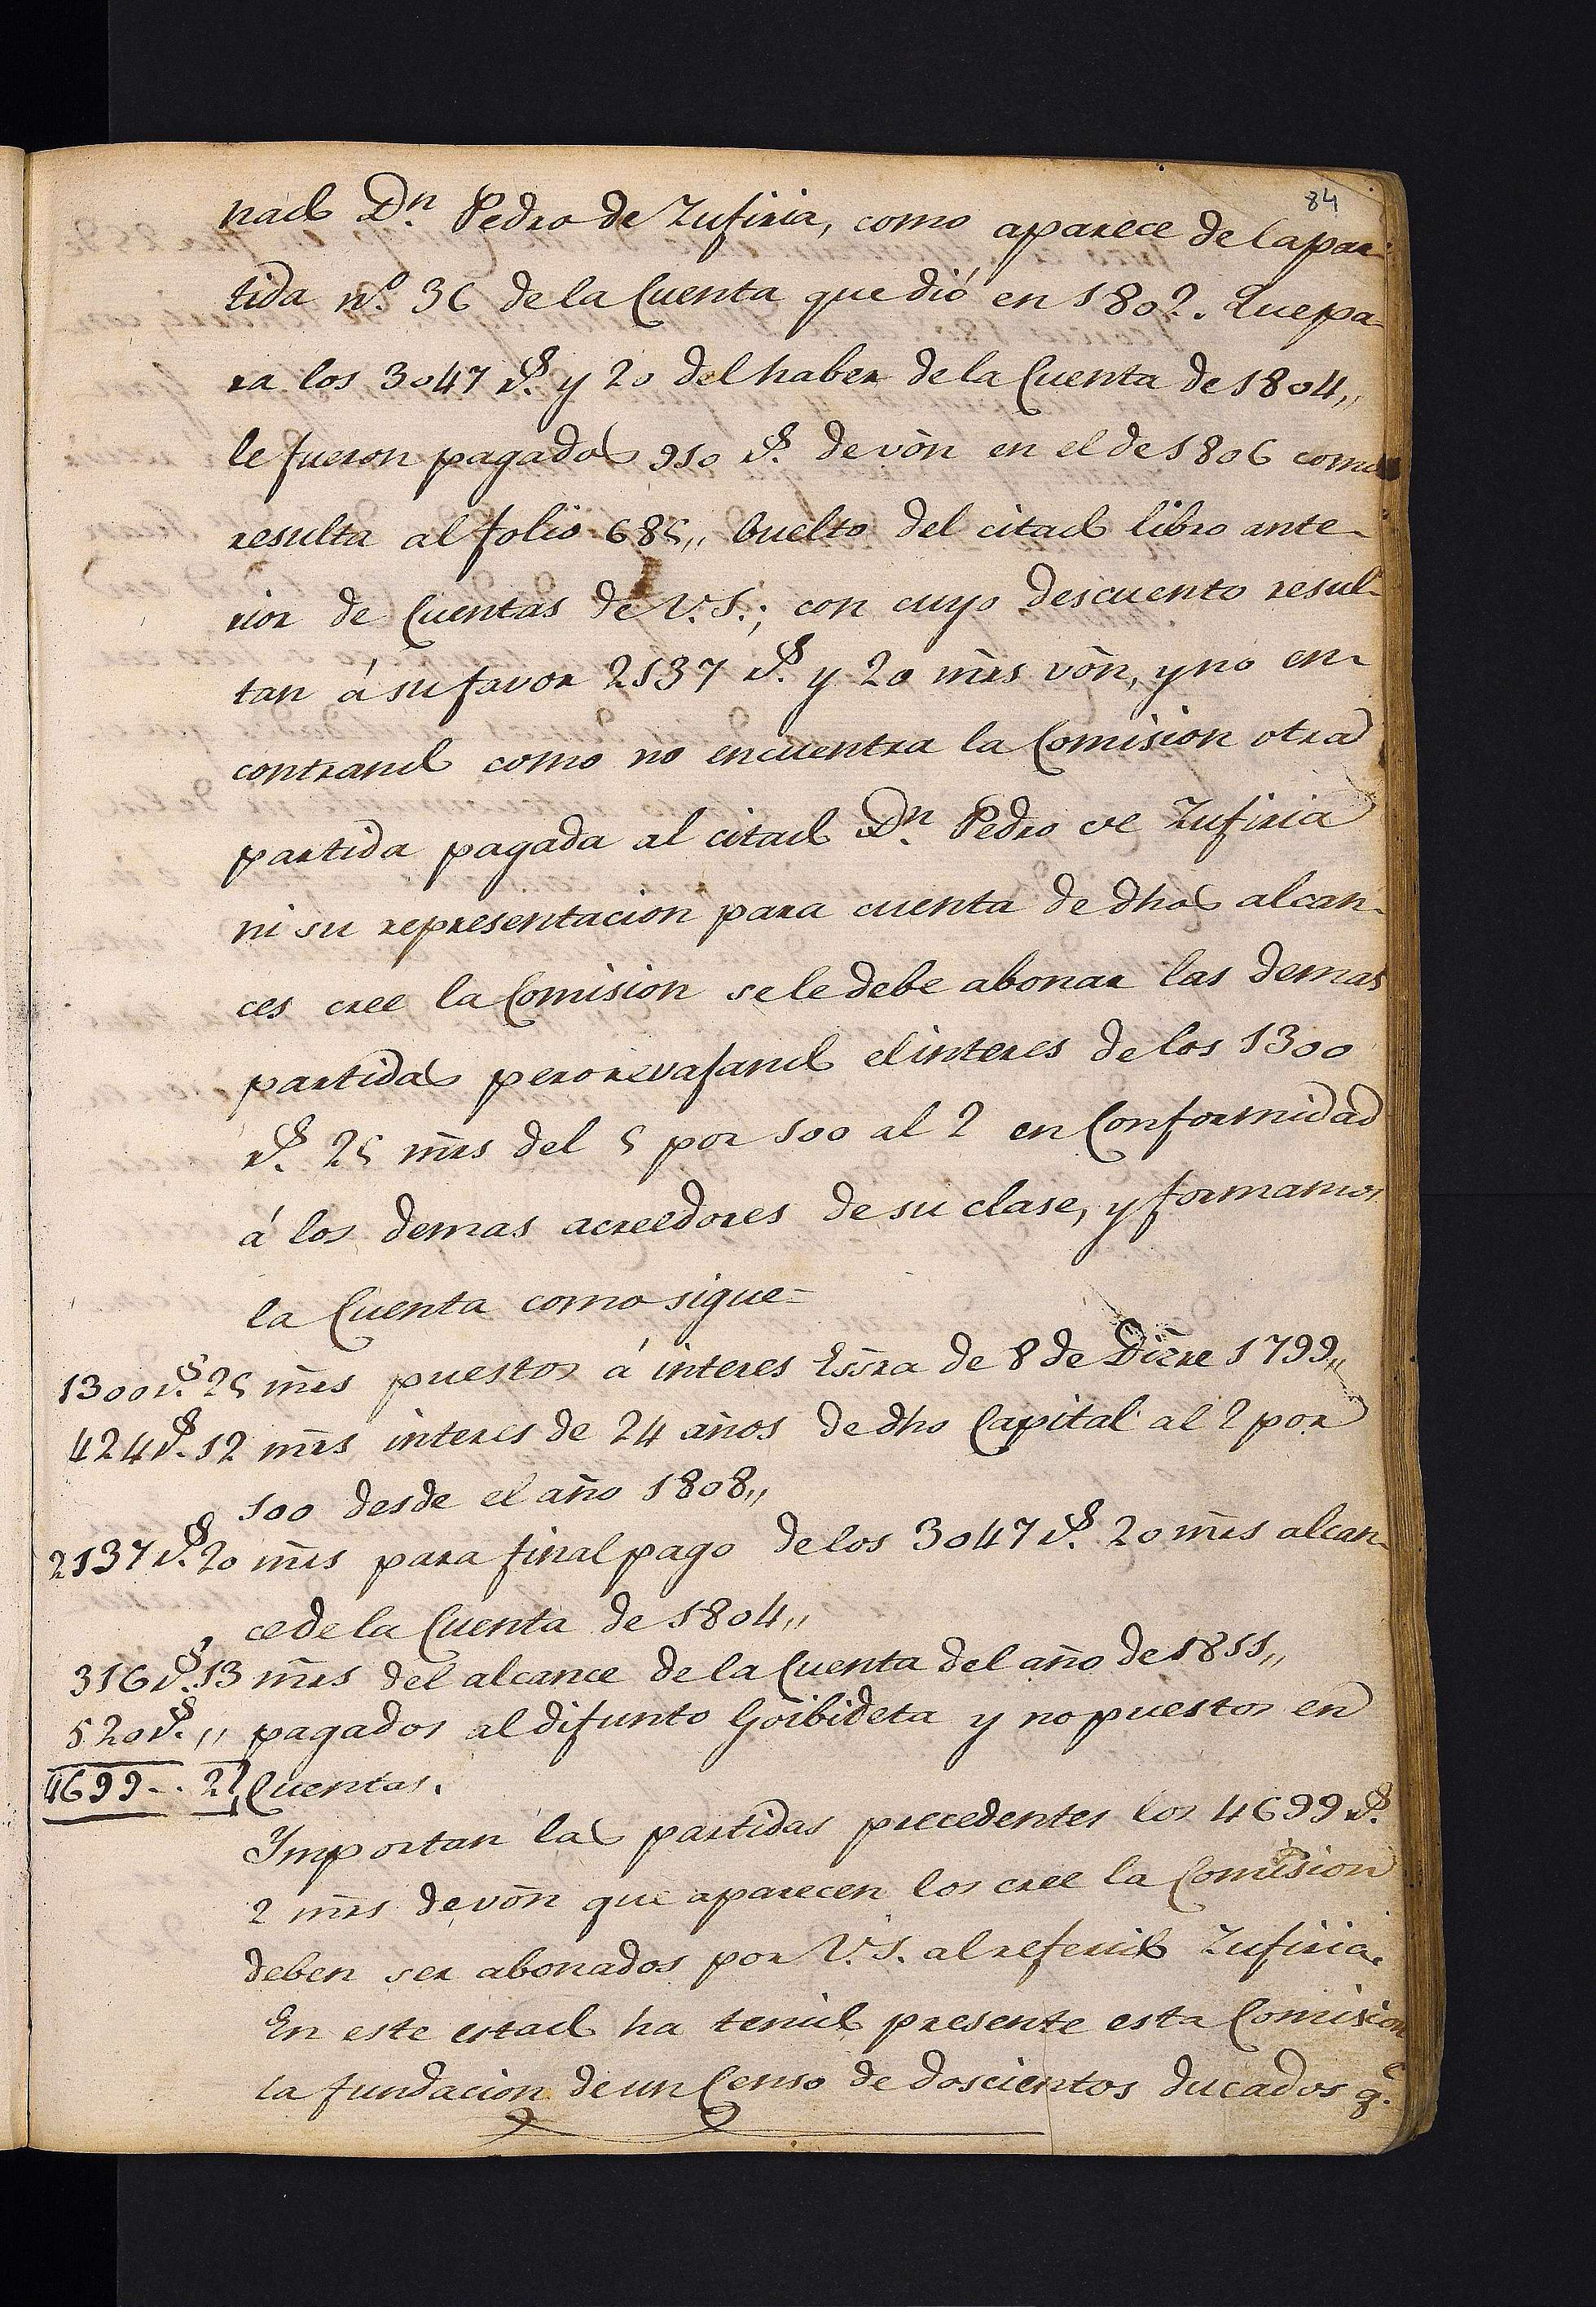 84
nado Dn. Pedro de Zufiria, como aparece de la par-
tida no. 36 de la Cuenta que dió en 1802. Que pa-
ra los 3047 rs. y 20 del haber de la Cuenta de 1804,,
le fueron pagados 910 rs. de von en el de 1806 como
resulta al folio 685,, buelto del citado libro ante-
rior de Cuentas de V.S.; con cuyo descuento resul-
tan á su favor 2137 rs. y 20 mrs von, y no en-
contrando como no encuentra la Comision otra
partida pagada al citado Dn. Pedro de Zufiria
ni su representacion para cuenta de dhos alcan-
ces cree la Comision se le debe abonar las demas
partidas pero revajando el interes de los 1300
rs. 25 mrs del 5 por 100 al 2 en Conformidad
á los demas acreedores de su clase, y formamos
la Cuenta como sigue=
1300 rs. 25 mrs puestos á interes Essra de 8 de Dizre 1799,,
424 rs. 12 mrs interes de 24 años de dho Capital al 2 por
100 desde el año 1808,,
2137 rs. 20 mrs para final pago de los 3047 rs. 20 mrs alcan-
ce de la Cuenta de 1804,,
316 rs. 13 mrs del alcance de la Cuenta del año de 1811,,
520 rs. ,, pagados al difunto Goibideta y no puestos en
4699 - . 2 Cuentas.
Importan las partidas precedentes los 4699 rs.
2 mrs de von que aparecen los cree la Comision
deben ser abonados por V.S. al referido Zufiria.
En este estado ha tenido presente esta Comision
la fundacion de un Censo de doscientos ducados qe.